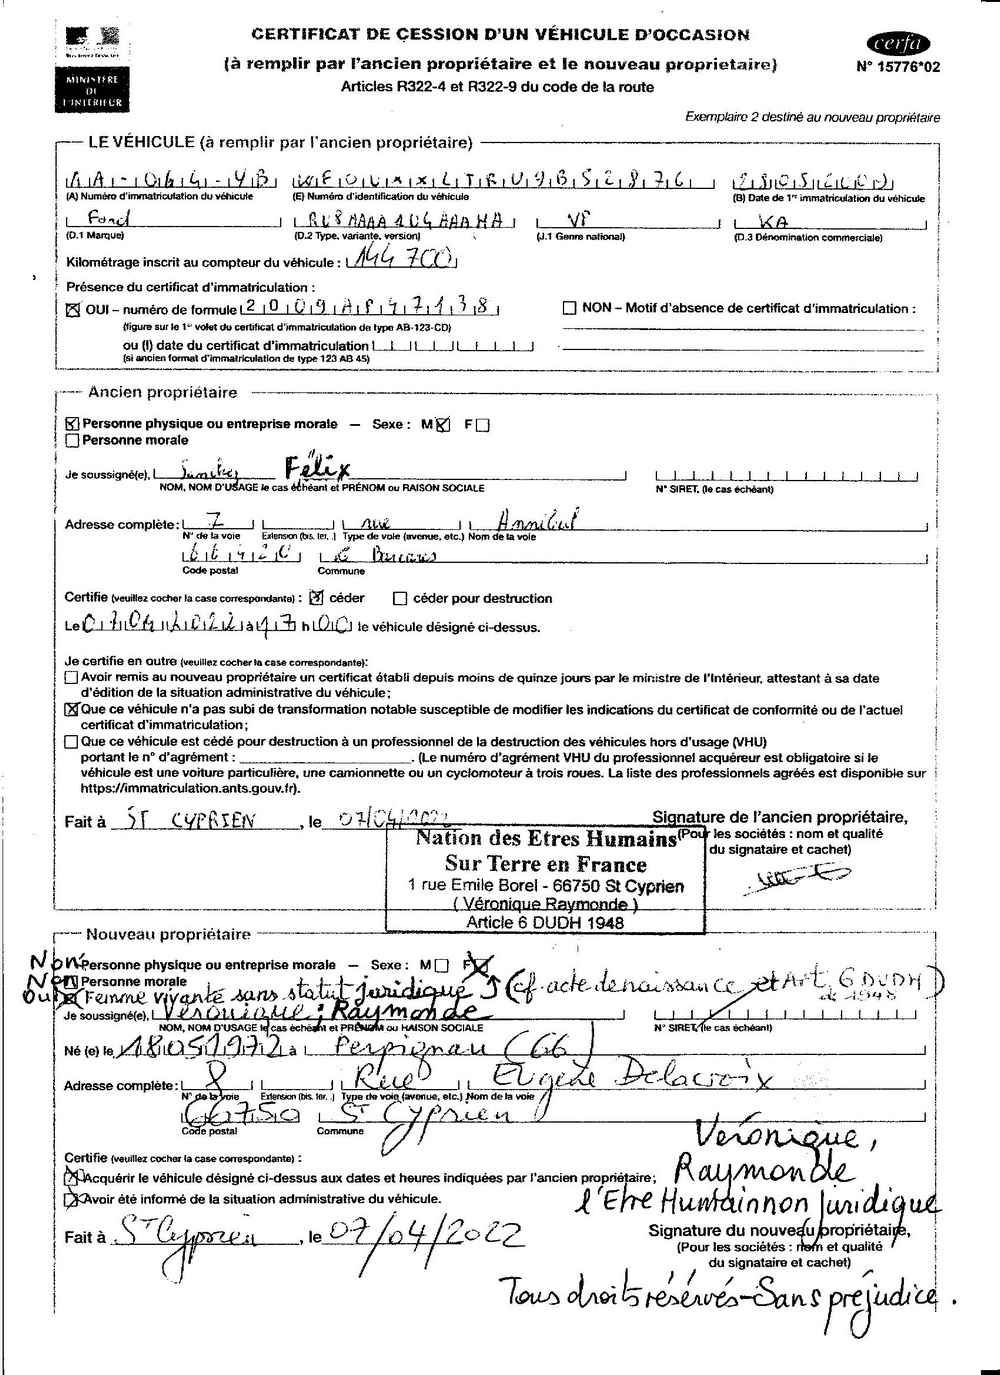 CERTIFICAT DE CESSION D'UN VÉHICULE D'OCCASION
(à remplir par l'ancien propriétaire et le nouveau proprietaire)
Articles R322-4 et R322-9 du code de la route
MINISTÈRE
DE
L'INTÉRIEUR
cerfa
N° 15776*02
Exemplaire 2 destiné au nouveau propriétaire
LE VÉHICULE (à remplir par l'ancien propriétaire)
AA-064-YB
(A) Numéro d'immatriculation du véhicule (E) Numéro d'identification du véhicule (B) Date de 1re immatriculation du véhicule
Ford RU8AAAA1U4AAAHA VP KA
(D.1 Marque) (D.2 Type, variante, version) (J.1 Genre national) (D.3 Dénomination commerciale)
Kilométrage inscrit au compteur du véhicule : 144 700
Présence du certificat d'immatriculation :
OUI – numéro de formule 2009AP47138 NON – Motif d'absence de certificat d'immatriculation :
(figure sur le 1er volet du certificat d'immatriculation de type AB-123-CD)
ou (I) date du certificat d'immatriculation
(si ancien format d'immatriculation de type 123 AB 45)
Ancien propriétaire
Personne physique ou entreprise morale – Sexe : M F
Personne morale
Je soussigné(e), Félix
NOM, NOM D'USAGE le cas échéant et PRÉNOM ou RAISON SOCIALE N° SIRET, (le cas échéant)
Adresse complète : 7 rue Annibal
N° de la voie Extension (bis, ter, .) Type de voie (avenue, etc.) Nom de la voie
66420 Le Barcares
Code postal Commune
Certifie (veuillez cocher la case correspondante) : céder céder pour destruction
Le 07042022 à 17 h 00 le véhicule désigné ci-dessus.
Je certifie en outre (veuillez cocher la case correspondante):
Avoir remis au nouveau propriétaire un certificat établi depuis moins de quinze jours par le ministre de l'Intérieur, attestant à sa date
d'édition de la situation administrative du véhicule;
Que ce véhicule n'a pas subi de transformation notable susceptible de modifier les indications du certificat de conformité ou de l'actuel
certificat d'immatriculation;
Que ce véhicule est cédé pour destruction à un professionnel de la destruction des véhicules hors d'usage (VHU)
portant le n° d'agrément : . (Le numéro d'agrément VHU du professionnel acquéreur est obligatoire si le
véhicule est une voiture particulière, une camionnette ou un cyclomoteur à trois roues. La liste des professionnels agréés est disponible sur
https://immatriculation.ants.gouv.fr).
Fait à ST CYPRIEN , le 07/04/2022 Signature de l'ancien propriétaire,
(Pour les sociétés : nom et qualité
du signataire et cachet)
Nation des Etres Humains
Sur Terre en France
1 rue Emile Borel - 66750 St Cyprien
( Véronique Raymonde )
Article 6 DUDH 1948
Nouveau propriétaire
Non Personne physique ou entreprise morale – Sexe : M F
Non Personne morale
Oui Femme vivante sans statut juridique (cf acte de naissance et Art. 6 DUDH)
de 1948
Je soussigné(e), Véronique; Raymonde
NOM, NOM D'USAGE le cas échéant et PRÉNOM ou RAISON SOCIALE N° SIRET, (le cas échéant)
Né (e) le 18051972 à Perpignan (66)
Adresse complète : 8 Rue Eugène Delacroix
N° de la voie Extension (bis, ter, .) Type de voie (avenue, etc.) Nom de la voie
66750 St Cyprien
Code postal Commune
Certifie (veuillez cocher la case correspondante) :
Acquérir le véhicule désigné ci-dessus aux dates et heures indiquées par l'ancien propriétaire;
Avoir été informé de la situation administrative du véhicule.
Véronique,
Raymonde
l'Etre Humain non juridique
Fait à St Cyprien , le 07/04/2022 Signature du nouveau propriétaire,
(Pour les sociétés : nom et qualité
du signataire et cachet)
Tous droits réservés-Sans préjudice.